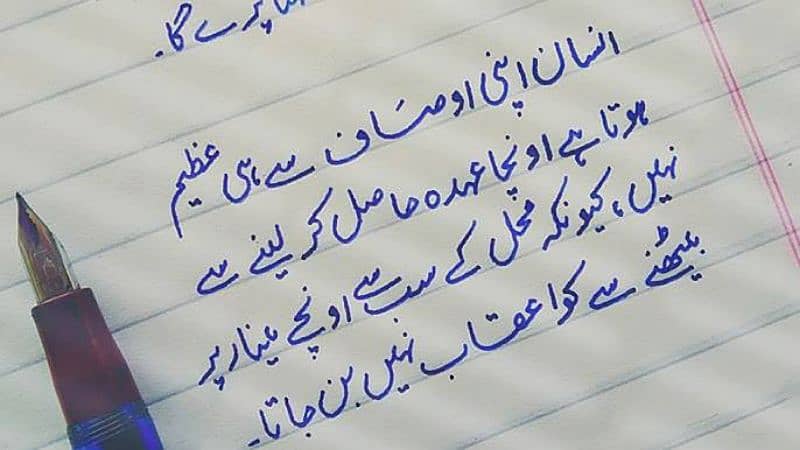 پڑے گا۔
انسان اپنی اوصَاف سے ہی عظیم
ہوتا ہے اونچا عہدہ حاصل کر لینے سے
نہیں، کیونکہ محل کے سب سے اونچے مینار پر
بیٹھنے سے کوا عقاب نہیں بن جاتا۔